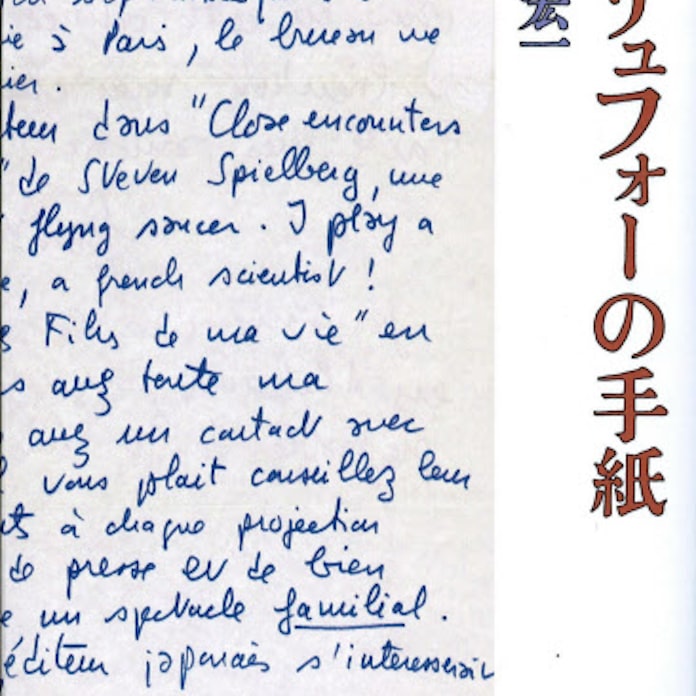 ie à Paris, le bureau ne
ier.
teur dans "Close encounters
" de Steven Spielberg, une
flyng saucer. I play a
e, a french scientist!
s Films de ma vie" en
s avez toute ma
avez un contact avec
l vous plait conseillez leur
ts à chaque projection
de presse et de bien
e un spectacle familial.
éditeur japonais s'intéresserait
リュフォーの手紙
宏一